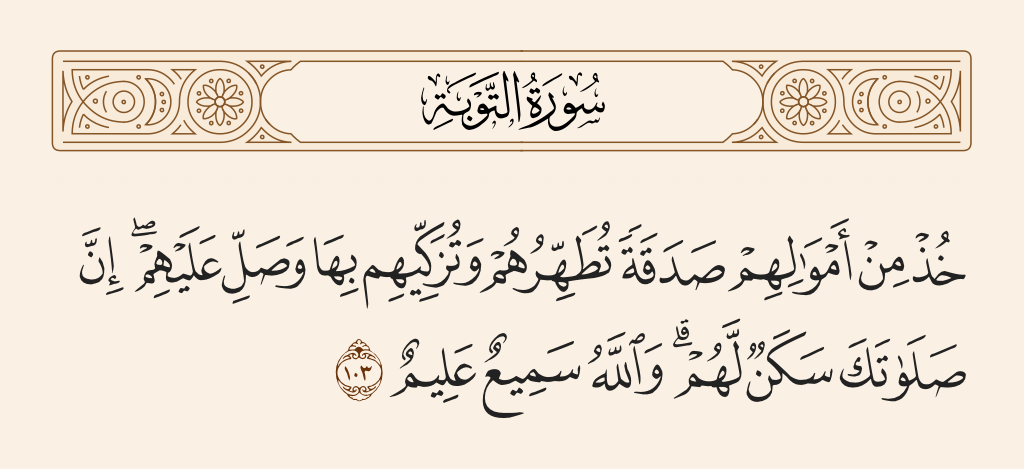 سُورَةُ التَّوْبَةِ
خُذْ مِنْ أَمْوَٰلِهِمْ صَدَقَةً تُطَهِّرُهُمْ وَتُزَكِّيهِم بِهَا وَصَلِّ عَلَيْهِمْ ۖ إِنَّ
صَلَوٰتَكَ سَكَنٌ لَّهُمْ ۗ وَٱللَّهُ سَمِيعٌ عَلِيمٌ ١٠٣